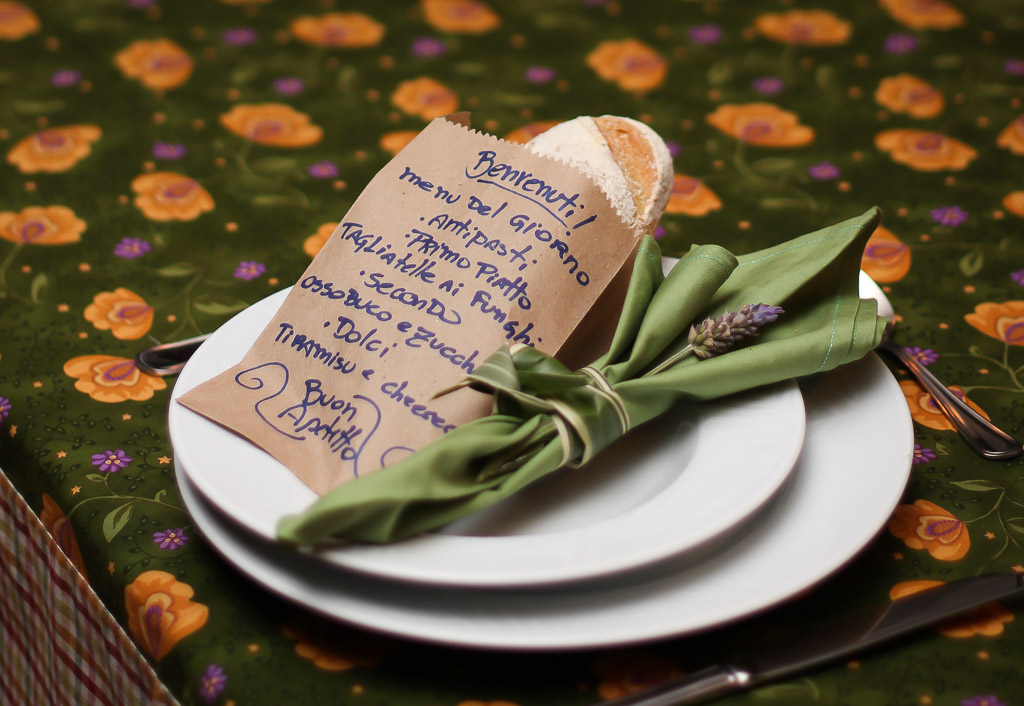 Benvenuti!
menu Del Giorno
. Antipasti
. Primo Piatto
Tagliatelle ai Funghi
. Secondo
ossobuco e zucch
. Dolci
Tiramisu e cheesec
Buon
Apetitto